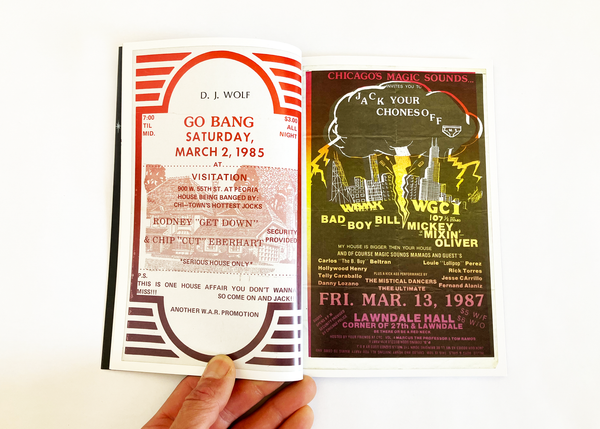 D. J. WOLF
7:00
TIL
MID.
$3.00
ALL
NIGHT
GO BANG
SATURDAY,
MARCH 2, 1985
AT
VISITATION
900 W. 55TH ST. AT PEORIA
HOUSE BEING BANGED BY:
CHI-TOWN'S HOTTEST JOCKS
RODNEY "GET DOWN"
& CHIP "CUT" EBERHART
SECURITY
PROVIDED
"SERIOUS HOUSE ONLY"
P.S.
THIS IS ONE HOUSE AFFAIR YOU DON'T WANNA
MISS!!!
SO COME ON AND JACK!
ANOTHER W.A.R. PROMOTION
CHICAGO'S MAGIC SOUNDS...
INVITES YOU TO
JACK YOUR
CHONES OFF
WBMX
WGCI
107½
BAD
BOY
BILL
MICKEY
"MIXIN"
OLIVER
MY HOUSE IS BIGGER THEN YOUR HOUSE
AND OF COURSE MAGIC SOUNDS MAMAOS AND GUEST'S
Carlos "The B. Boy" Beltran
Louie "Lollipop" Perez
Hollywood Henry
Rick Torres
Telly Caraballo
Jesse Carrillo
Danny Lozano
Fernand Alaniz
PLUS A KICK ASS PERFORMANCE BY
THE MISTICAL DANCERS
THEE ULTIMATE
FRI. MAR. 13, 1987
LAWNDALE HALL
CORNER OF 27th & LAWNDALE
$5 W/F
$6 W/O
BE THERE OR BE A RED NECK